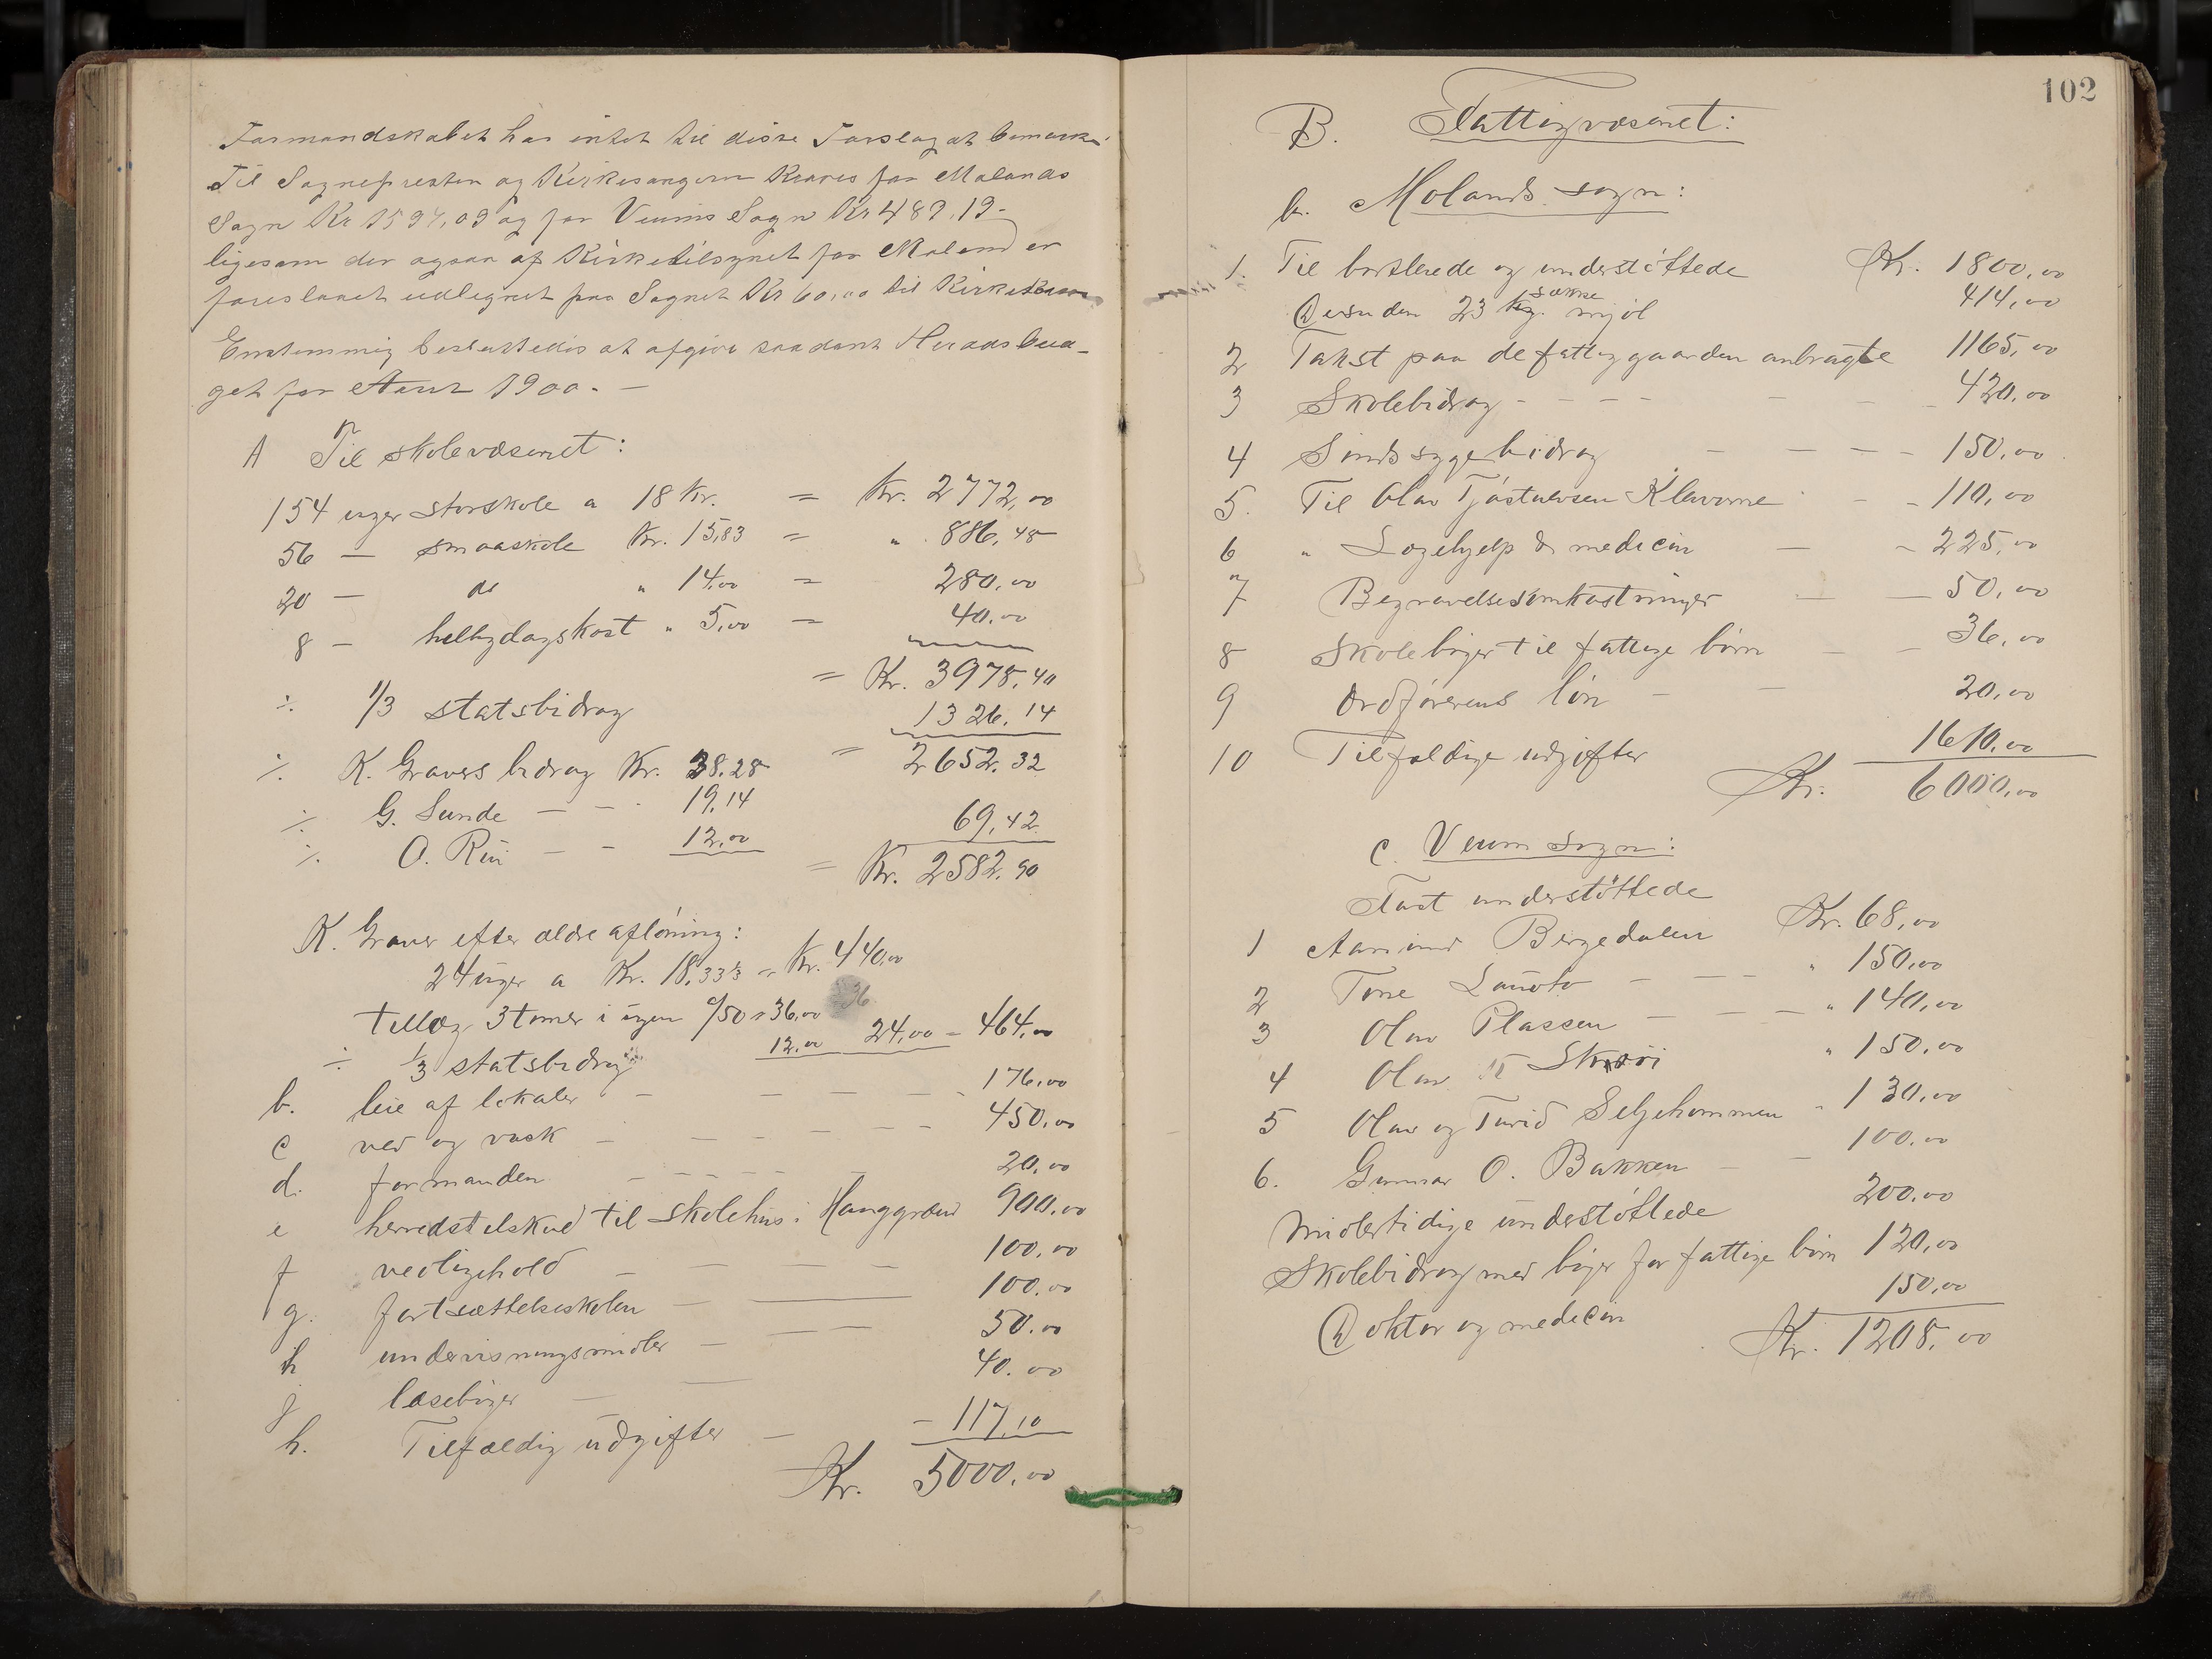 Formandskabet har intet til disse Forslag at bemærke.
Til Sognepresten og Kirkesangeren kræves for Molands
Sogn Kr 1597,09 og for Veums Sogn Kr 489,19-
ligesom der ogsaa af Kirketilsynet for Moland er
foreslaaet udlignet paa Sognet Kr 60,00 til Kirkekassen
Enstemmig besluttedes at afgive saadant Heradsbud-
get for Aaret 1900. —
A Til skolevæsenet:
154 uger storskole a 18 Kr. = Kr. 2772,00
56 — smaaskole Kr. 15,83 = " 886,48
20 — do " 14,00 = 280,00
8 — helligdagskost " 5,00 = 40,00
= Kr. 3978,40
÷ 1/3 statsbidrag 1326,14
= 2652,32
÷ K. Gravers bidrag Kr. 38,28
÷ G. Sunde — — 19,14
÷ O. Rui — — 12,00 69,42
= Kr. 2582,90
K. Graver efter ældre aflöning:
24 uger a Kr. 18,33 1/3 = Kr. 440,00
tillæg 3 timer i ugen a/50 = 36,00
÷ 1/3 statsbidrag 12,00 24,00 = 464,00
b. leie af lokaler — — — — — 176,00
c ved og vask — — — — — 450,00
d. formanden — — — — — 20,00
e herredstilskud til skolehus i Hauggrænd 900,00
f vedligehold — — — — 100,00
g. fortsættelseskolen — — 100,00
h undervisningsmidler — — — 50,00
j læsebøger — — 40,00
h. Tilfældig udgifter — — 117,10
Kr. 5000,00
102
B. Fattigvæsenet:
b. Molands sogn:
1. Til bortlerede og understöttede Kr. 1800,00
sække
Desuden 23 kg. mjöl 414,00
2 Takst paa de fattiggaarden anbragte 1165,00
3 Skolebidrag - - - - — — - 420,00
4 Sindssygebidrag — — — — 150,00
5. Til Olav Tjöstulvsen Klevorne - - 110,00
6 " Lægehjelp & medicin — - 225,00
7 Begravelsesomkostninger — — 50,00
8 Skolebøger til fattige börn — — 36,00
9 Ordförerens lön — — 20,00
10 Tilfældige udgifter 1610,00
Kr. 6000,00
c. Veum sogn:
Fast understöttede
1 Aanund Bergedalen Kr. 68,00
2 Tone — — — " 150,00
3 Olav Plassen — — — " 140,00
4 Olav " 150,00
5 Olav og Turid Seljehommen " 130,00
6. Gunnar O. Bakken — — 100,00
Midlertidige understöttede 200,00
Skolebidrag med bøger for fattige börn 120,00
Doktor og medicin 150,00
Kr. 1208,00